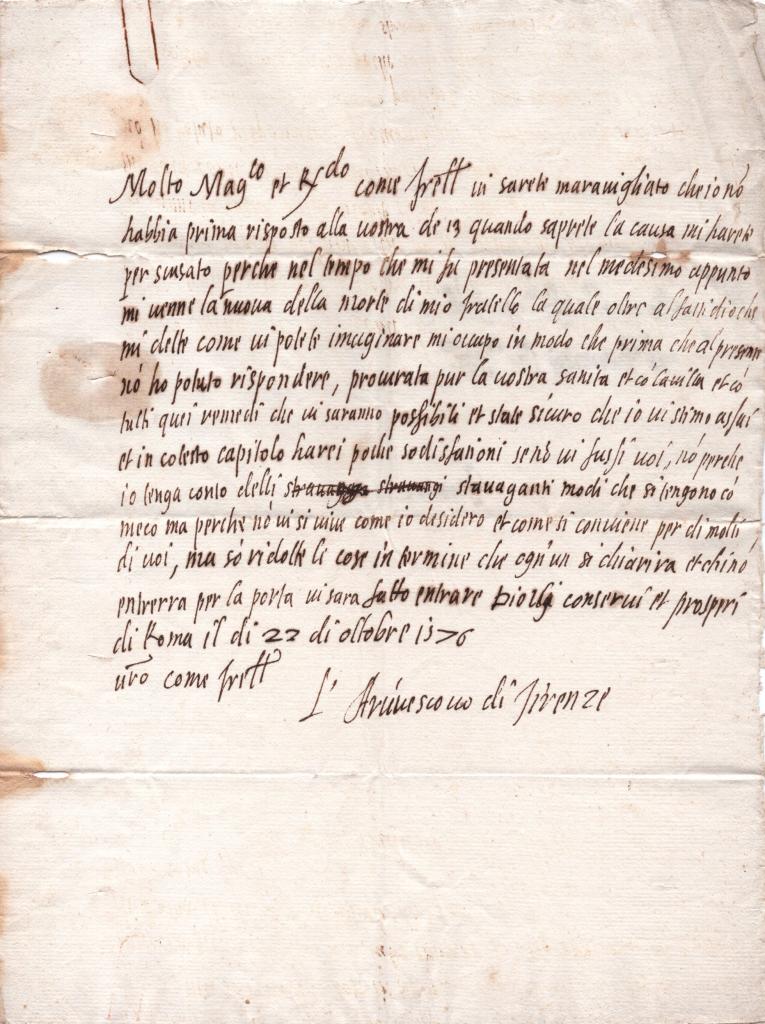 Molto Mag.co et R.do come fretll vi sarete maravigliato che io nō
habbia prima risposto alla vostra de 13 quando saprete la causa mi harete
per scusato perche nel tempo che mi fu presentata nel medesimo appunto
mi venne la nuova della morte di mio fratello la quale oltre al fastidio che
mi dette come vi potete imaginare mi occupo in modo che prima che al presente
nō ho potuto rispondere, procurata pur la vostra sanita et cō et cō
tutti quei remedi che vi saranno possibili et state sicuro che io vi stimo assai
et in cotesto capitolo harei poche sodisfationi se nō vi fussi voi, nō perche
io tenga conto delli stravaganti modi che si tengono cō
meco ma perche nō vi si vive come io desidero et come si conviene per di molti
di voi, ma sō ridotte le cose in termine che ogn'un si chiarira et chi nō
entrerra per la porta vi sara fatto entrare conservi et prosperi
di Roma il di 22 di ottobre 1576
vrō come fretll
L' Arcivescovo di firenze